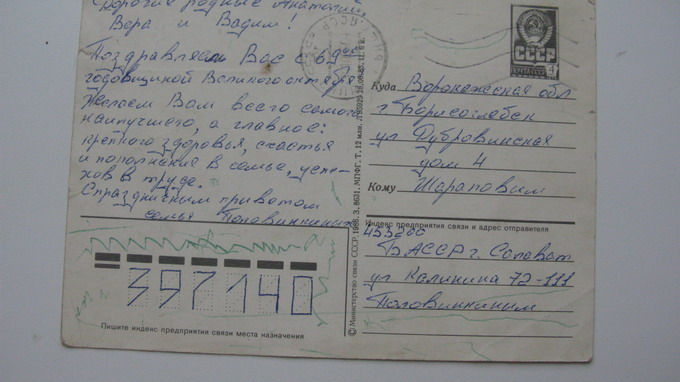 Дорогие родные Анатолий
Вера и Вадим!
Поздравляем Вас с 69 ой
годовщиной Великого октября
Желаем Вам всего самого
наилучшего, а главное:
крепкого здоровья, счастья
и пополнения в семье, успе-
хов в труде.
С праздничным приветом
семья Половинкиных
СССР
4
Куда Воронежская обл
г. Борисоглебск
ул Дубровинская
дом 4
Кому Шараповым
Индекс предприятия связи и адрес отправителя
453200
БАССР г. Салават
ул Калинина 72-111
Половинкиным
397140
Пишите индекс предприятия связи места назначения
© Министерство связи СССР. 1985. З. 8631. МПФГ. Т. 12 млн.